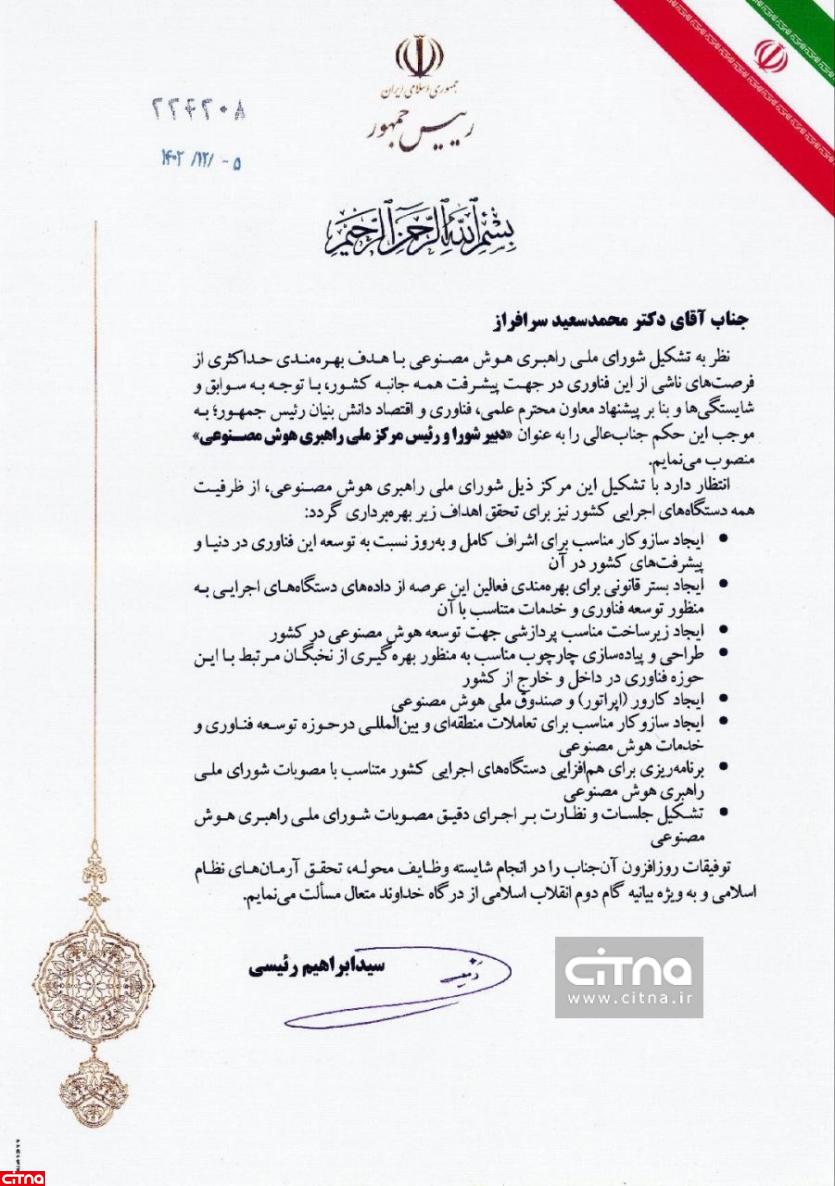 جمهوری اسلامی ایران
رییس جمهور
۲۲۴۲۰۸
۱۴۰۲/۱۲/۰۵
بسم الله الرحمن الرحیم
جناب آقای دکتر محمدسعید سرافراز
نظر به تشکیل شورای ملی راهبری هوش مصنوعی با هدف بهره‌مندی حداکثری از
فرصت‌های ناشی از این فناوری در جهت پیشرفت همه جانبه کشور، با توجه به سوابق و
شایستگی‌ها و بنا بر پیشنهاد معاون محترم علمی، فناوری و اقتصاد دانش بنیان رئیس جمهور؛ به
موجب این حکم جناب‌عالی را به عنوان «دبیر شورا و رئیس مرکز ملی راهبری هوش مصنوعی»
منصوب می‌نمایم.
انتظار دارد با تشکیل این مرکز ذیل شورای ملی راهبری هوش مصنوعی، از ظرفیت
همه دستگاه‌های اجرایی کشور نیز برای تحقق اهداف زیر بهره‌برداری گردد:
• ایجاد سازوکار مناسب برای اشراف کامل و به‌روز نسبت به توسعه این فناوری در دنیا و
پیشرفت‌های کشور در آن
• ایجاد بستر قانونی برای بهره‌مندی فعالین این عرصه از داده‌های دستگاه‌های اجرایی به
منظور توسعه فناوری و خدمات متناسب با آن
• ایجاد زیرساخت مناسب پردازشی جهت توسعه هوش مصنوعی در کشور
• طراحی و پیاده‌سازی چارچوب مناسب به منظور بهره‌گیری از نخبگان مرتبط با این
حوزه فناوری در داخل و خارج از کشور
• ایجاد کارور (اپراتور) و صندوق ملی هوش مصنوعی
• ایجاد سازوکار مناسب برای تعاملات منطقه‌ای و بین‌المللی درحوزه توسعه فناوری و
خدمات هوش مصنوعی
• برنامه‌ریزی برای هم‌افزایی دستگاه‌های اجرایی کشور متناسب با مصوبات شورای ملی
راهبری هوش مصنوعی
• تشکیل جلسات و نظارت بر اجرای دقیق مصوبات شورای ملی راهبری هوش
مصنوعی
توفیقات روزافزون آن‌جناب را در انجام شایسته وظایف محوله، تحقق آرمان‌های نظام
اسلامی و به ویژه بیانیه گام دوم انقلاب اسلامی از درگاه خداوند متعال مسألت می‌نمایم.
سیدابراهیم رئیسی
citna
www.citna.ir
citna